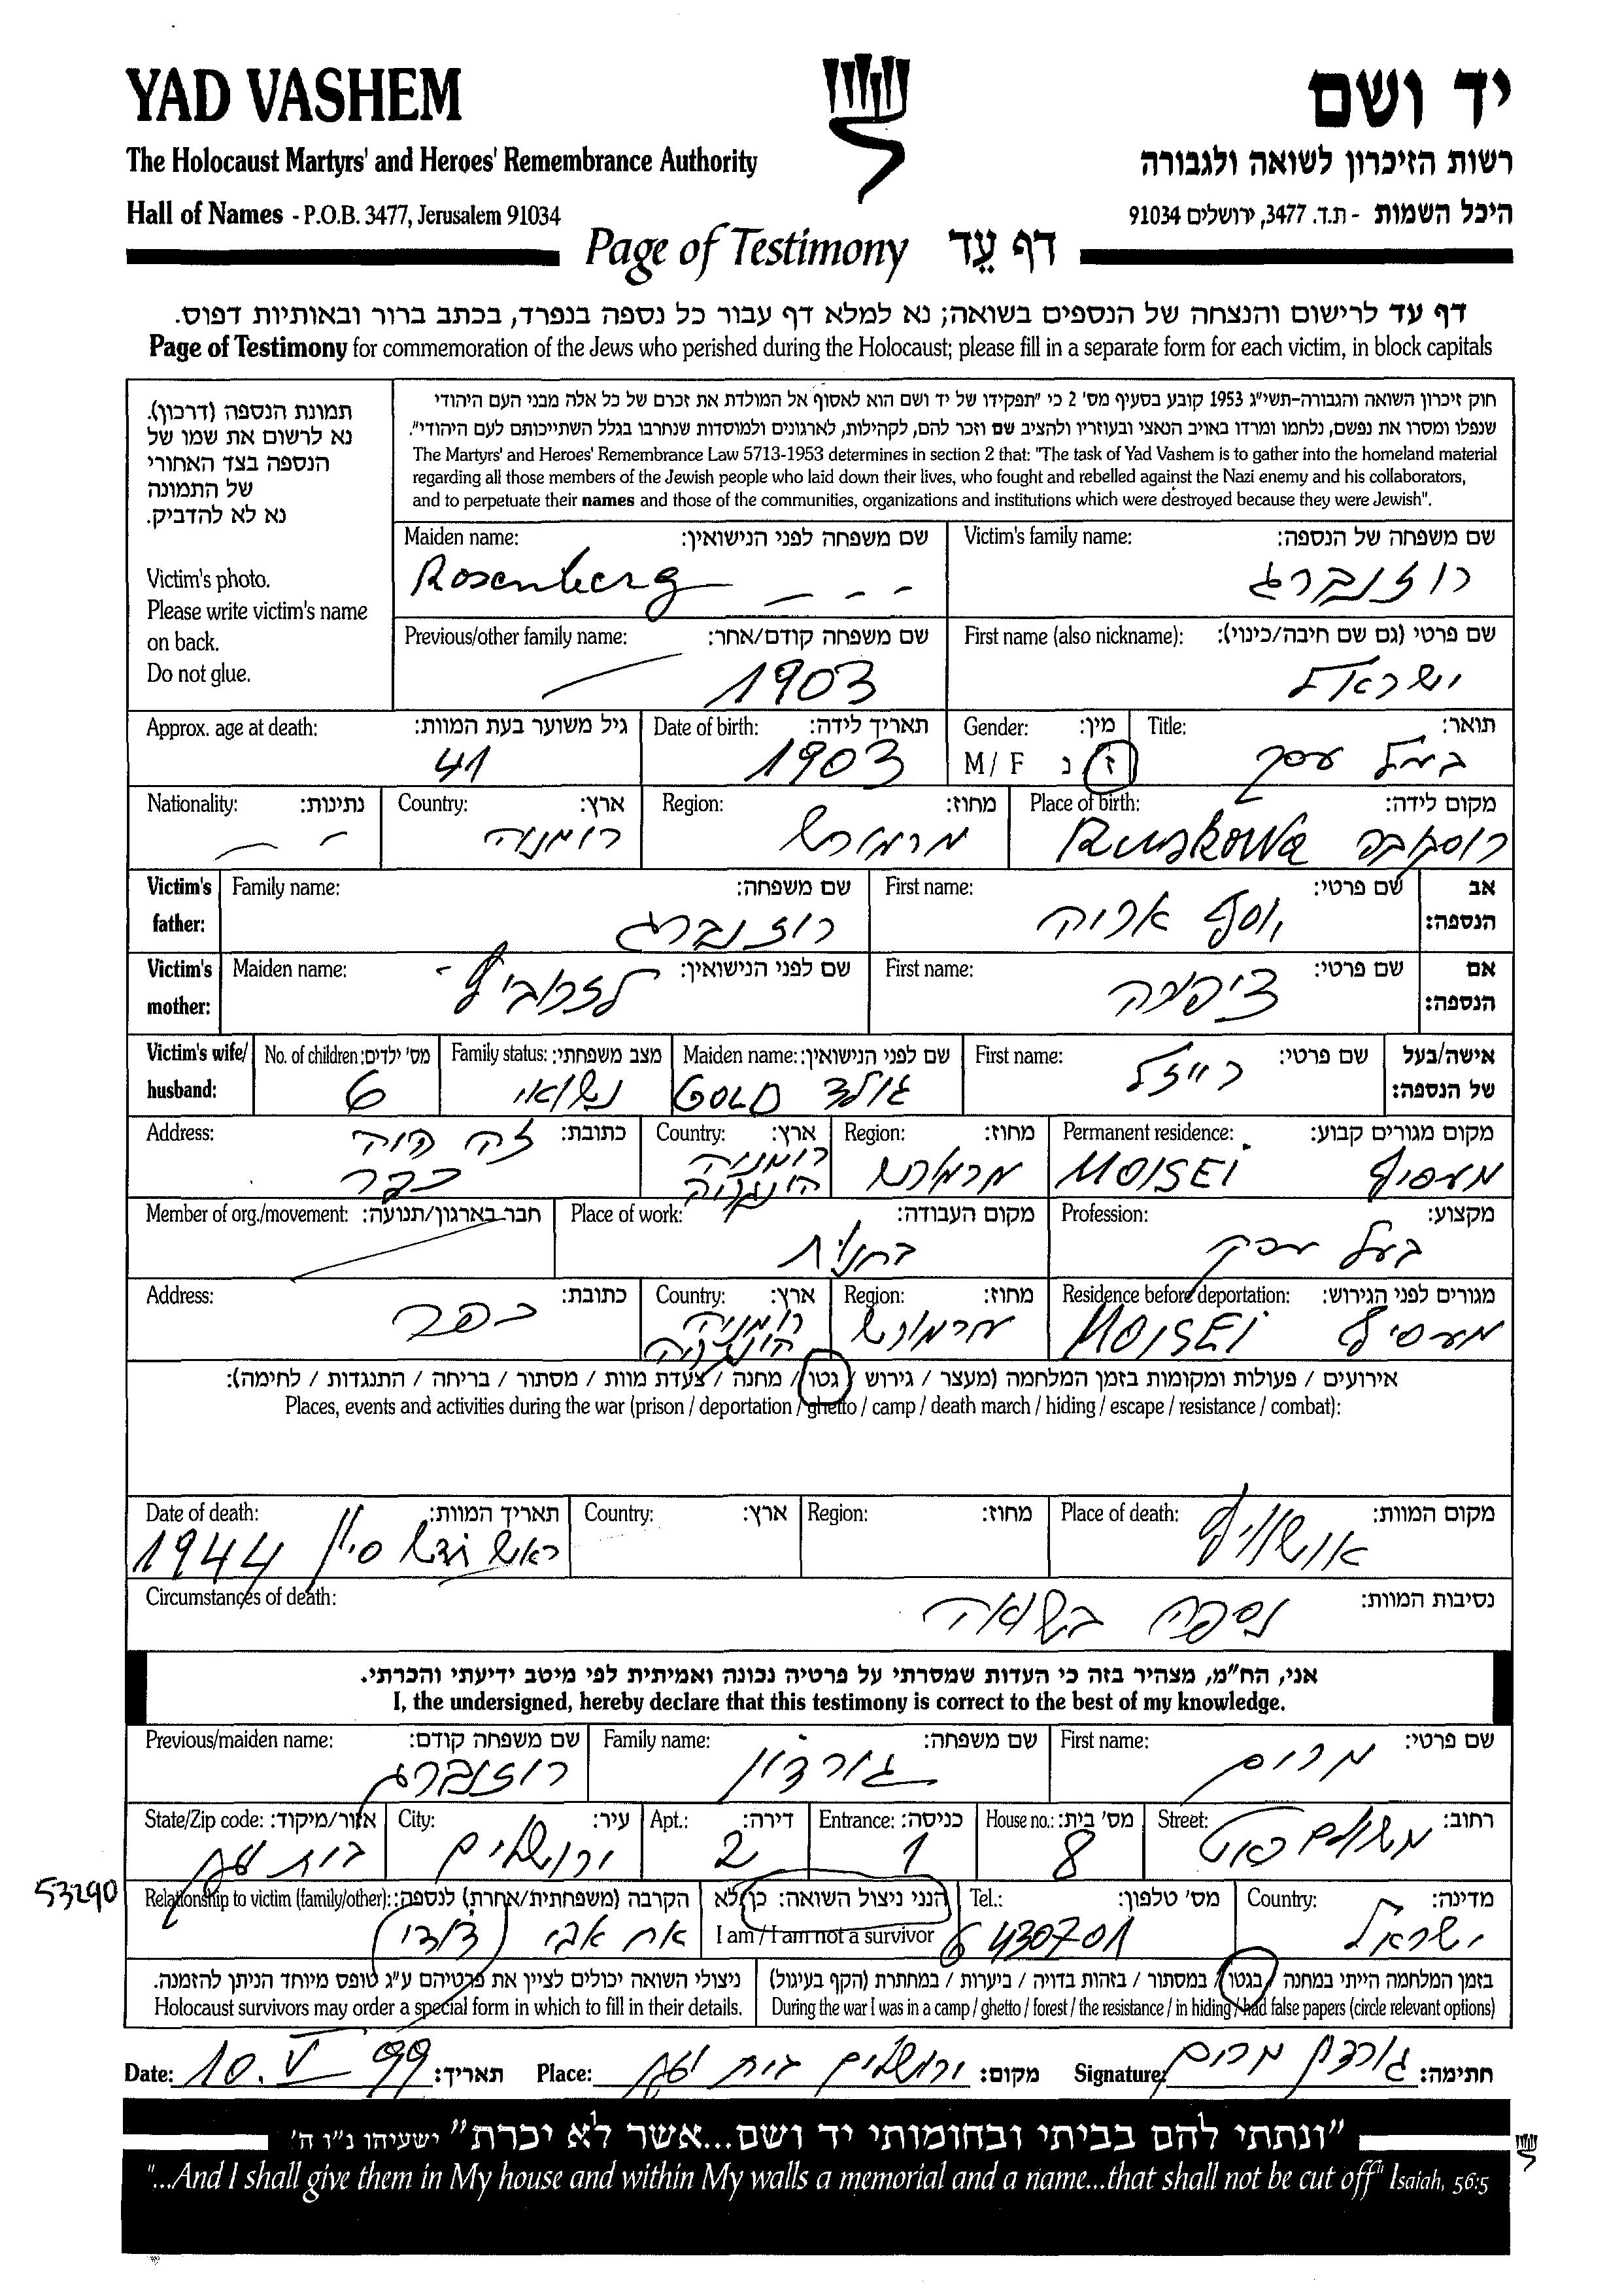 YAD VASHEM
יד ושם
The Holocaust Martyrs' and Heroes' Remembrance Authority
רשות הזיכרון לשואה ולגבורה
Hall of Names - P.O.B. 3477, Jerusalem 91034
היכל השמות - ת.ד. 3477, ירושלים 91034
Page of Testimony דף עֵד
דף עד לרישום והנצחה של הנספים בשואה; נא למלא דף עבור כל נספה בנפרד, בכתב ברור ובאותיות דפוס.
Page of Testimony for commemoration of the Jews who perished during the Holocaust; please fill in a separate form for each victim, in block capitals
תמונת הנספה (דרכון).
נא לרשום את שמו של
הנספה בצד האחורי
של התמונה
נא לא להדביק.
Victim's photo.
Please write victim's name
on back.
Do not glue.
חוק זיכרון השואה והגבורה-תשי"ג 1953 קובע בסעיף מס' 2 כי "תפקידו של יד ושם הוא לאסוף אל המולדת את זכרם של כל אלה מבני העם היהודי
שנפלו ומסרו את נפשם, נלחמו ומרדו באויב הנאצי ובעוזריו ולהציב שם וזכר להם, לקהילות, לארגונים ולמוסדות שנחרבו בגלל השתייכותם לעם היהודי".
The Martyrs' and Heroes' Remembrance Law 5713-1953 determines in section 2 that: "The task of Yad Vashem is to gather into the homeland material
regarding all those members of the Jewish people who laid down their lives, who fought and rebelled against the Nazi enemy and his collaborators,
and to perpetuate their names and those of the communities, organizations and institutions which were destroyed because they were Jewish".
Victim's family name: שם משפחה של הנספה:
רוזנברג
Maiden name: שם משפחה לפני הנישואין:
Rosenberg - - -
First name (also nickname): שם פרטי (גם שם חיבה/כינוי):
ישראל
Previous/other family name: שם משפחה קודם/אחר:
1903
Title: תואר:
בעל עסק
Gender: מין:
M / F ז נ
Date of birth: תאריך לידה:
1903
Approx. age at death: גיל משוער בעת המוות:
41
Place of birth: מקום לידה:
Ruskowa רוסקובה
Region: מחוז:
מרמורש
Country: ארץ:
רומניה
Nationality: נתינות:
Victim's father: אב הנספה:
First name: שם פרטי:
יוסף אריה
Family name: שם משפחה:
רוזנברג
Victim's mother: אם הנספה:
First name: שם פרטי:
ציפורה
Maiden name: שם לפני הנישואין:
Victim's wife/ husband: אישה/בעל של הנספה:
First name: שם פרטי:
רייזל
Maiden name: שם לפני הנישואין:
GOLD גולד
Family status: מצב משפחתי:
נשואי
No. of children: מס' ילדים:
6
Permanent residence: מקום מגורים קבוע:
MOISEI מעסיף
Region: מחוז:
מרמורש
Country: ארץ:
רומניה
הונגריה
Address: כתובת:
זה היה
כפר
Profession: מקצוע:
בעל עסק
Place of work: מקום העבודה:
בחנות
Member of org./movement: חבר בארגון/תנועה:
Residence before deportation: מגורים לפני הגירוש:
MOISEI מעסיף
Region: מחוז:
מרמורש
Country: ארץ:
רומניה
הונגריה
Address: כתובת:
כפר
אירועים / פעולות ומקומות בזמן המלחמה (מעצר / גירוש / גטו / מחנה / צעדת מוות / מסתור / בריחה / התנגדות / לחימה):
Places, events and activities during the war (prison / deportation / ghetto / camp / death march / hiding / escape / resistance / combat):
Place of death: מקום המוות:
אושוויץ
Region: מחוז:
Country: ארץ:
Date of death: תאריך המוות:
ראש חודש סיון 1944
Circumstances of death: נסיבות המוות:
נספה בשואה
אני, הח"מ, מצהיר בזה כי העדות שמסרתי על פרטיה נכונה ואמיתית לפי מיטב ידיעתי והכרתי.
I, the undersigned, hereby declare that this testimony is correct to the best of my knowledge.
First name: שם פרטי:
מרים
Family name: שם משפחה:
גורדון
Previous/maiden name: שם משפחה קודם:
רוזנברג
Street: רחוב:
משולם ראט
House no.: מס' בית:
8
Entrance: כניסה:
1
Apt.: דירה:
2
City: עיר:
ירושלים
State/Zip code: אזור/מיקוד:
בית וגן
53290
Country: מדינה:
ישראל
Tel.: מס' טלפון:
6430701
הנני ניצול השואה: כן/לא
I am / I am not a survivor
Relationship to victim (family/other): הקרבה (משפחתית/אחרת) לנספה:
אח אבי (דודי)
בזמן המלחמה הייתי במחנה / בגטו / במסתור / בזהות בדויה / ביערות / במחתרת (הקף בעיגול)
During the war I was in a camp / ghetto / forest / the resistance / in hiding / had false papers (circle relevant options)
ניצולי השואה יכולים לציין את פרטיהם ע"ג טופס מיוחד הניתן להזמנה.
Holocaust survivors may order a special form in which to fill in their details.
Date: 10.V 99 תאריך: Place: ירושלים בית וגן מקום: Signature: גורדון מרים חתימה:
"ונתתי להם בביתי ובחומותי יד ושם...אשר לא יכרת" ישעיהו נ"ו ה'
"...And I shall give them in My house and within My walls a memorial and a name...that shall not be cut off" Isaiah, 56:5